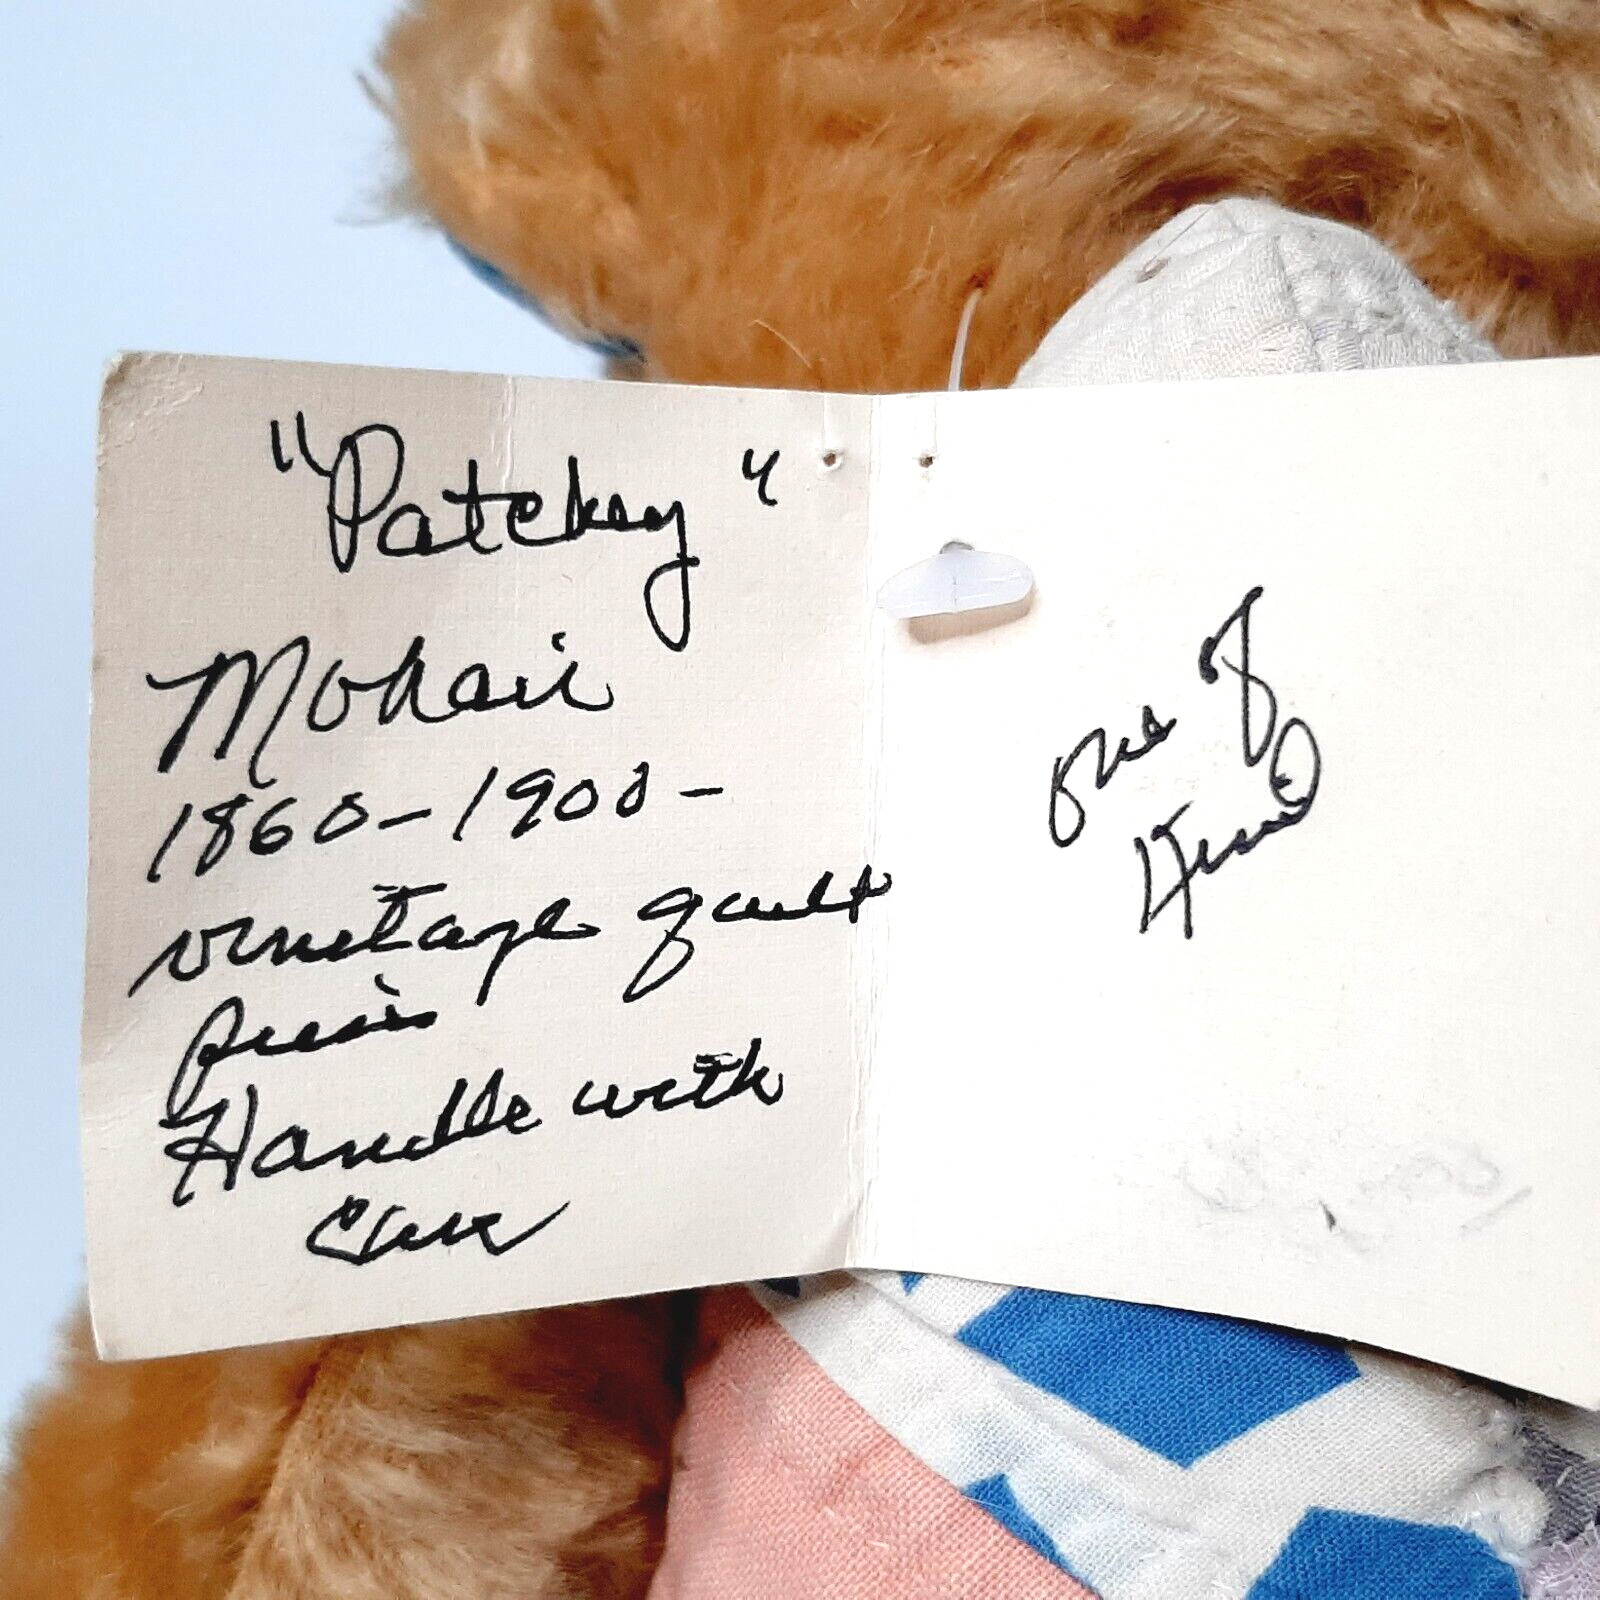 "Patchey"
Mohair
1860-1900-
vintage quilt
pieces
Handle with
Care
one of
Kind